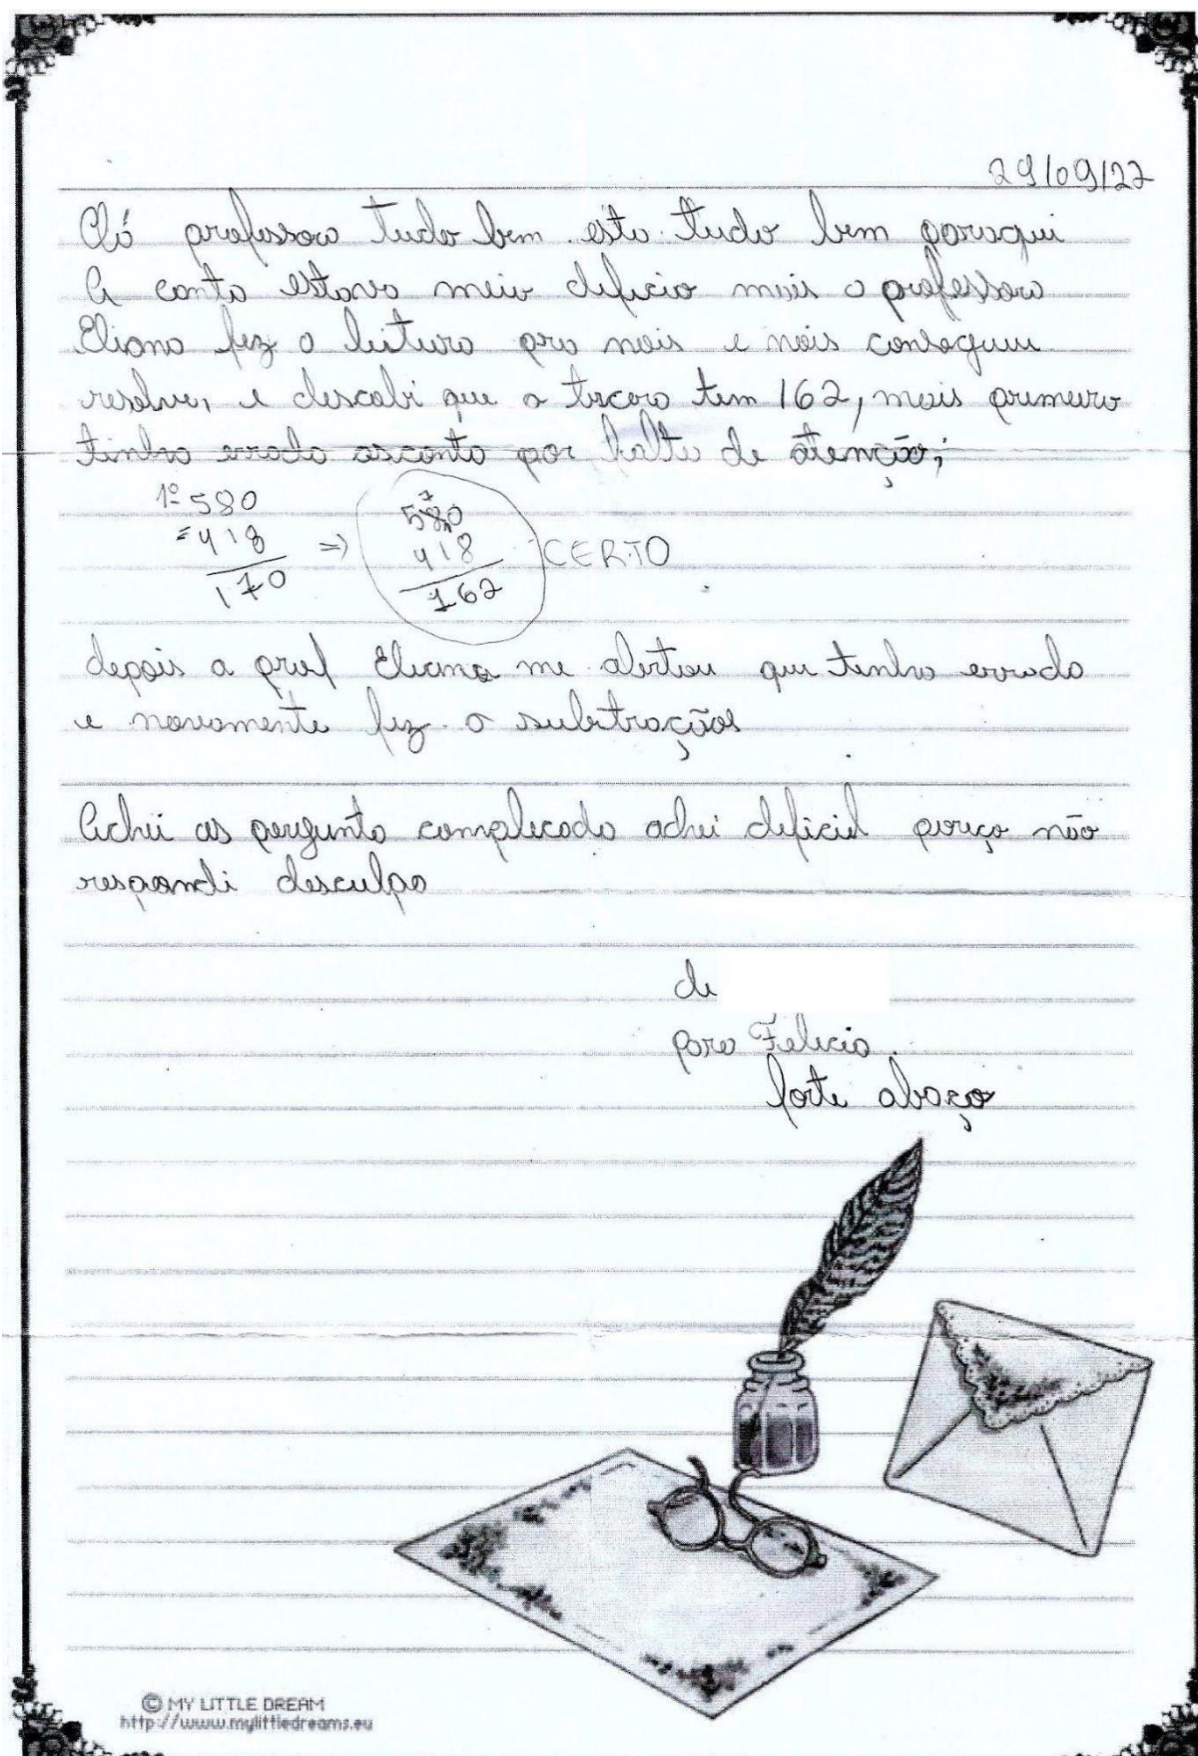 29/09/22
Olá professora tudo bem. esta tudo bem poraqui
A conta estava meio deficio mais a professora
Eliana fez a leitura pra nois e nois conseguiu
resolve, e descobi que o tercero tem 162, mais primeiro
tinha errado asconta por falta de atenção;
1º 580
- 418
170
=>
7
580
418
162
CERTO
depois a prof Eliana me alertou que tinha errado
e novamente fez a subtraçãos
Achei as pergunta complicada achei dificiel poriço não
respondi desculpa
de
para Felicia.
forte abaço
© MY LITTLE DREAM
http://www.mylittledreams.eu